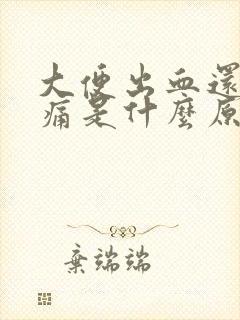 大便出血還
痛是什麼原
棄端端